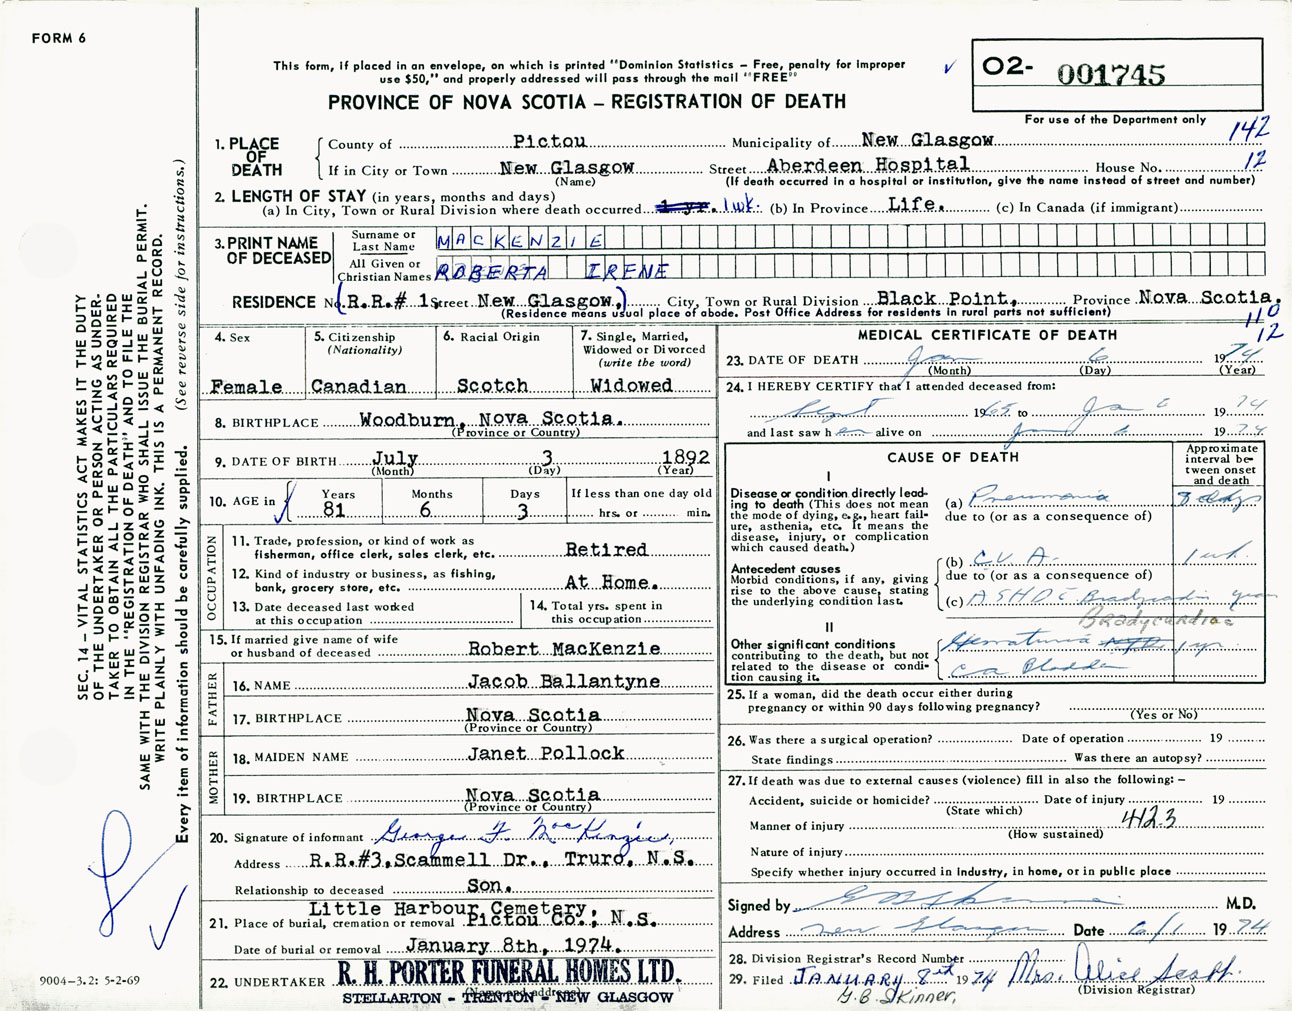 FORM 6
This form, if placed in an envelope, on which is printed "Dominion Statistics – Free, penalty for improper
use $50," and properly addressed will pass through the mail "FREE"
PROVINCE OF NOVA SCOTIA – REGISTRATION OF DEATH
O2- 001745
For use of the Department only
142
12
1. PLACE OF DEATH
County of Pictou Municipality of New Glasgow
If in City or Town New Glasgow Street Aberdeen Hospital House No.
(Name) (If death occurred in a hospital or institution, give the name instead of street and number)
2. LENGTH OF STAY (in years, months and days)
(a) In City, Town or Rural Division where death occurred 1 yr. 1 wk. (b) In Province Life. (c) In Canada (if immigrant)
3. PRINT NAME OF DECEASED
Surname or Last Name MACKENZIE
All Given or Christian Names ROBERTA IRENE
RESIDENCE No. (R.R.# 1 Street New Glasgow,) City, Town or Rural Division Black Point, Province Nova Scotia.
(Residence means usual place of abode. Post Office Address for residents in rural parts not sufficient)
110
12
4. Sex
Female
5. Citizenship
(Nationality)
Canadian
6. Racial Origin
Scotch
7. Single, Married,
Widowed or Divorced
(write the word)
Widowed
8. BIRTHPLACE Woodburn, Nova Scotia.
(Province or Country)
9. DATE OF BIRTH July 3 1892
(Month) (Day) (Year)
10. AGE in
Years Months Days If less than one day old
81 6 3 hrs. or min.
OCCUPATION
11. Trade, profession, or kind of work as
fisherman, office clerk, sales clerk, etc. Retired
12. Kind of industry or business, as fishing,
bank, grocery store, etc. At Home.
13. Date deceased last worked
at this occupation
14. Total yrs. spent in
this occupation
15. If married give name of wife
or husband of deceased Robert MacKenzie
FATHER
16. NAME Jacob Ballantyne
17. BIRTHPLACE Nova Scotia
(Province or Country)
MOTHER
18. MAIDEN NAME Janet Pollock
19. BIRTHPLACE Nova Scotia
(Province or Country)
20. Signature of informant George F MacKenzie,
Address R.R.#3, Scammell Dr., Truro, N.S.
Relationship to deceased Son.
Little Harbour Cemetery;
21. Place of burial, cremation or removal Pictou Co., N.S.
Date of burial or removal January 8th, 1974.
22. UNDERTAKER R. H. PORTER FUNERAL HOMES LTD.
(Name and address)
STELLARTON - TRENTON - NEW GLASGOW
MEDICAL CERTIFICATE OF DEATH
23. DATE OF DEATH Jan 6 1974
(Month) (Day) (Year)
24. I HEREBY CERTIFY that I attended deceased from:
Sept 1965 to Jan 6 1974
and last saw her alive on Jan 6 1974
CAUSE OF DEATH
Approximate
interval be-
tween onset
and death
I
Disease or condition directly lead-
ing to death (This does not mean
the mode of dying, e.g., heart fail-
ure, asthenia, etc. It means the
disease, injury, or complication
which caused death.)
(a) Pneumonia 3 days
due to (or as a consequence of)
Antecedent causes
Morbid conditions, if any, giving
rise to the above cause, stating
the underlying condition last.
(b) C.V.A. 1 wk.
due to (or as a consequence of)
(c) ASHD c Bradycardia years
Bradycardia
II
Other significant conditions
contributing to the death, but not
related to the disease or condi-
tion causing it.
Hematuria 1 yr.
Ca Bladder
25. If a woman, did the death occur either during
pregnancy or within 90 days following pregnancy?
(Yes or No)
26. Was there a surgical operation? Date of operation 19
State findings Was there an autopsy?
27. If death was due to external causes (violence) fill in also the following: –
Accident, suicide or homicide? Date of injury 19
(State which)
Manner of injury 412.3
(How sustained)
Nature of injury
Specify whether injury occurred in Industry, in home, or in public place
Signed by M.D.
Address New Glasgow Date 6/1 1974
28. Division Registrar's Record Number
29. Filed JANUARY 8th 1974 Mrs. Alice Scott.
(Division Registrar)
G.B. SKINNER,
SEC. 14 – VITAL STATISTICS ACT MAKES IT THE DUTY
OF THE UNDERTAKER OR PERSON ACTING AS UNDER-
TAKER TO OBTAIN ALL THE PARTICULARS REQUIRED
IN THE "REGISTRATION OF DEATH" AND TO FILE THE
SAME WITH THE DIVISION REGISTRAR WHO SHALL ISSUE THE BURIAL PERMIT.
WRITE PLAINLY WITH UNFADING INK. THIS IS A PERMANENT RECORD.
Every item of information should be carefully supplied. (See reverse side for instructions.)
9004-3.2: 5-2-69